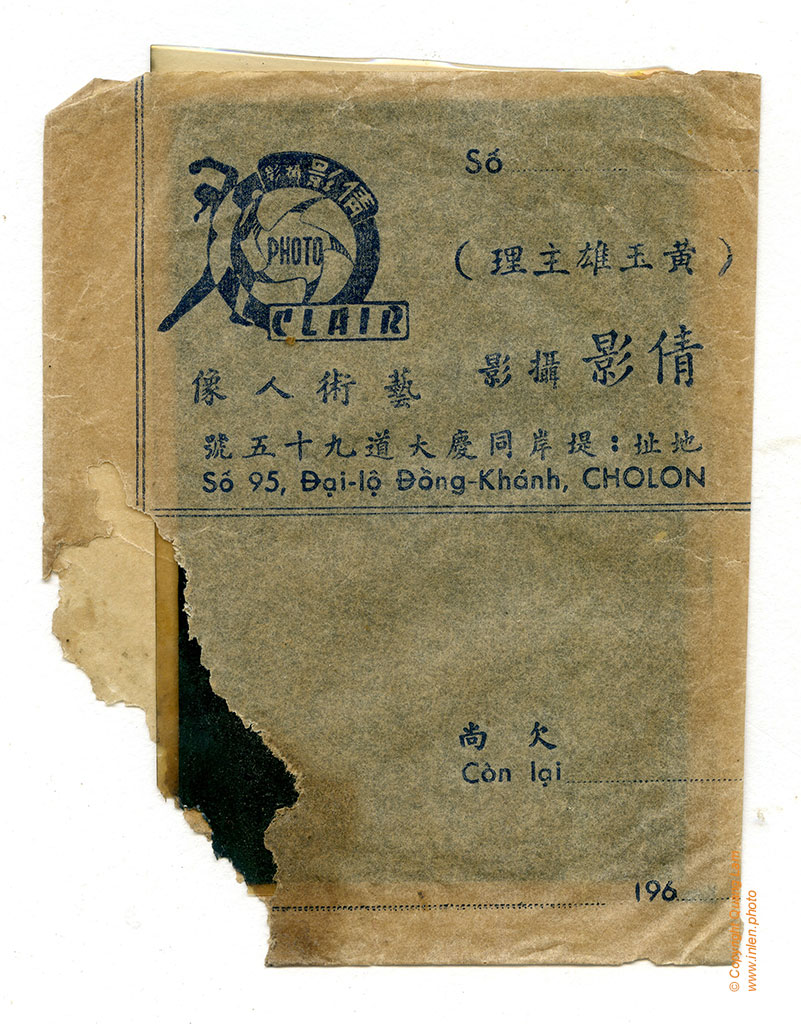 倩影攝影
PHOTO
CLAIR
Số
(黃玉雄主理)
倩影攝影
藝術人像
地址:提岸同慶大道九十五號
Số 95, Đại-lộ Đồng-Khánh, CHOLON
欠尚
Còn lại
196
© Copyright
www.inlen.photo